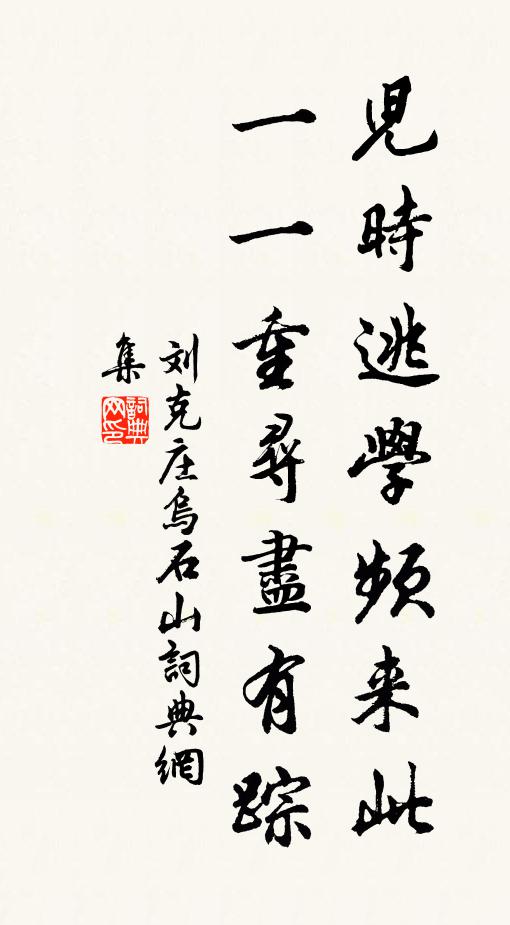 兒時逃學頻来此
一一重尋盡有踪
刘克庄烏石山詞典網
集
詞典网印